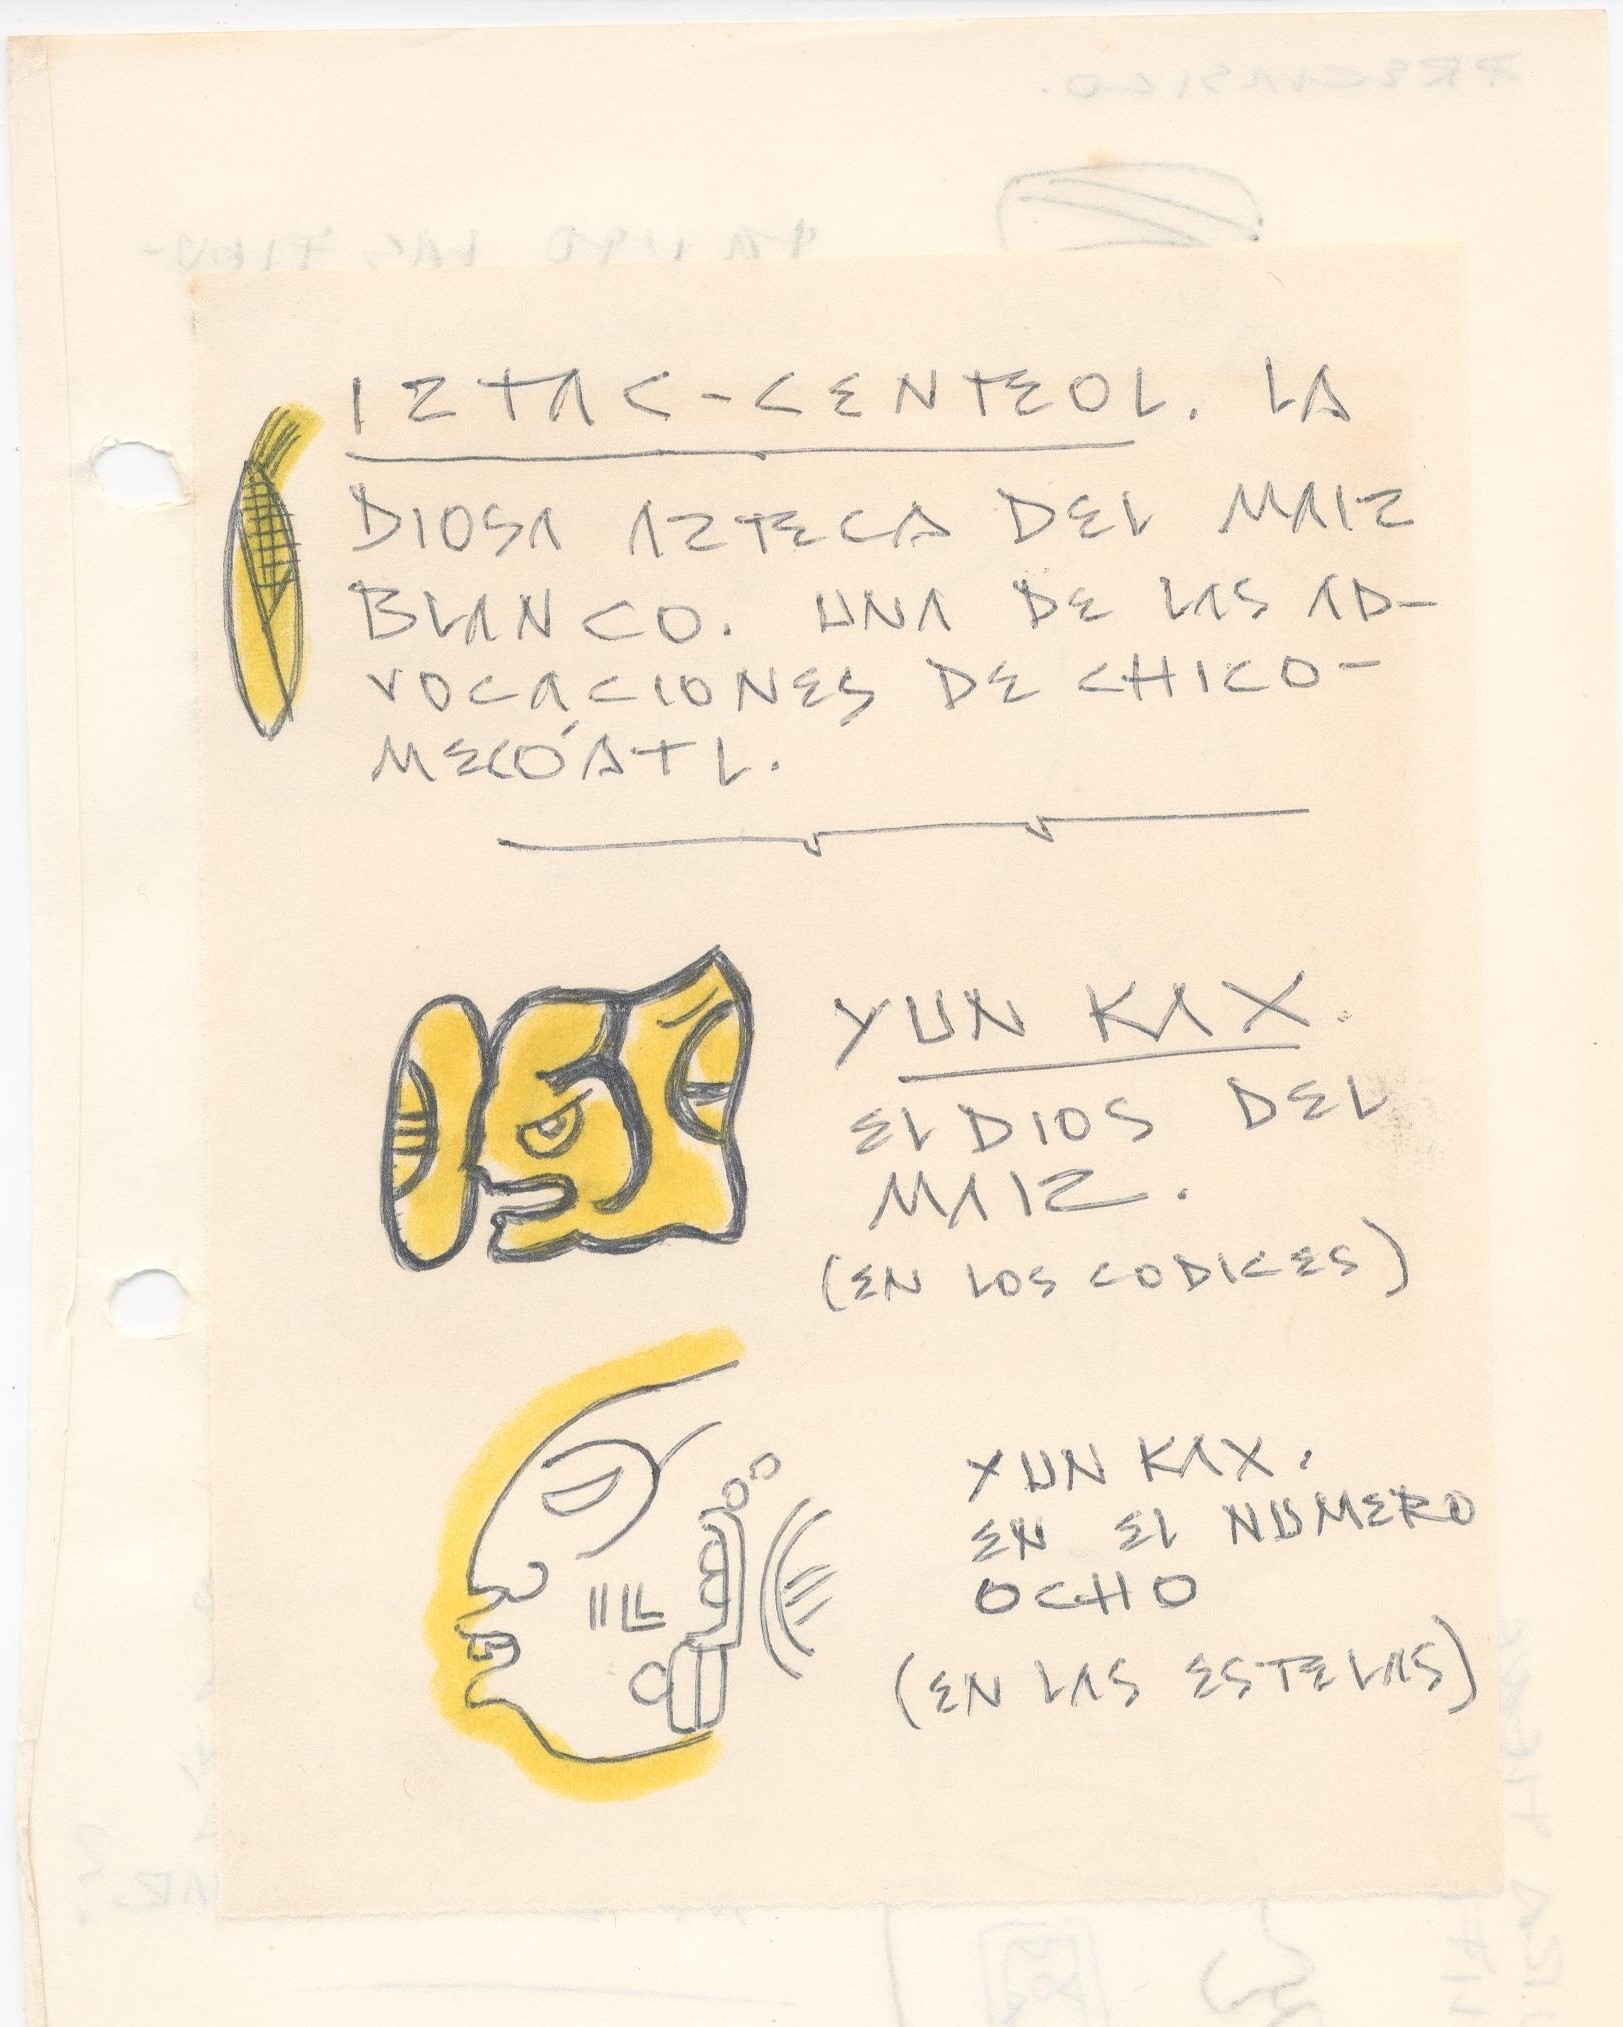 IZTAC-CENTEOL. LA
DIOSA AZTECA DEL MAIZ
BLANCO. UNA DE LAS AD-
VOCACIONES DE CHICO-
MECÓATL.
YUN KAX.
EL DIOS DEL
MAIZ.
(EN LOS CODICES)
YUN KAX.
EN EL NUMERO
OCHO
(EN LAS ESTELAS)